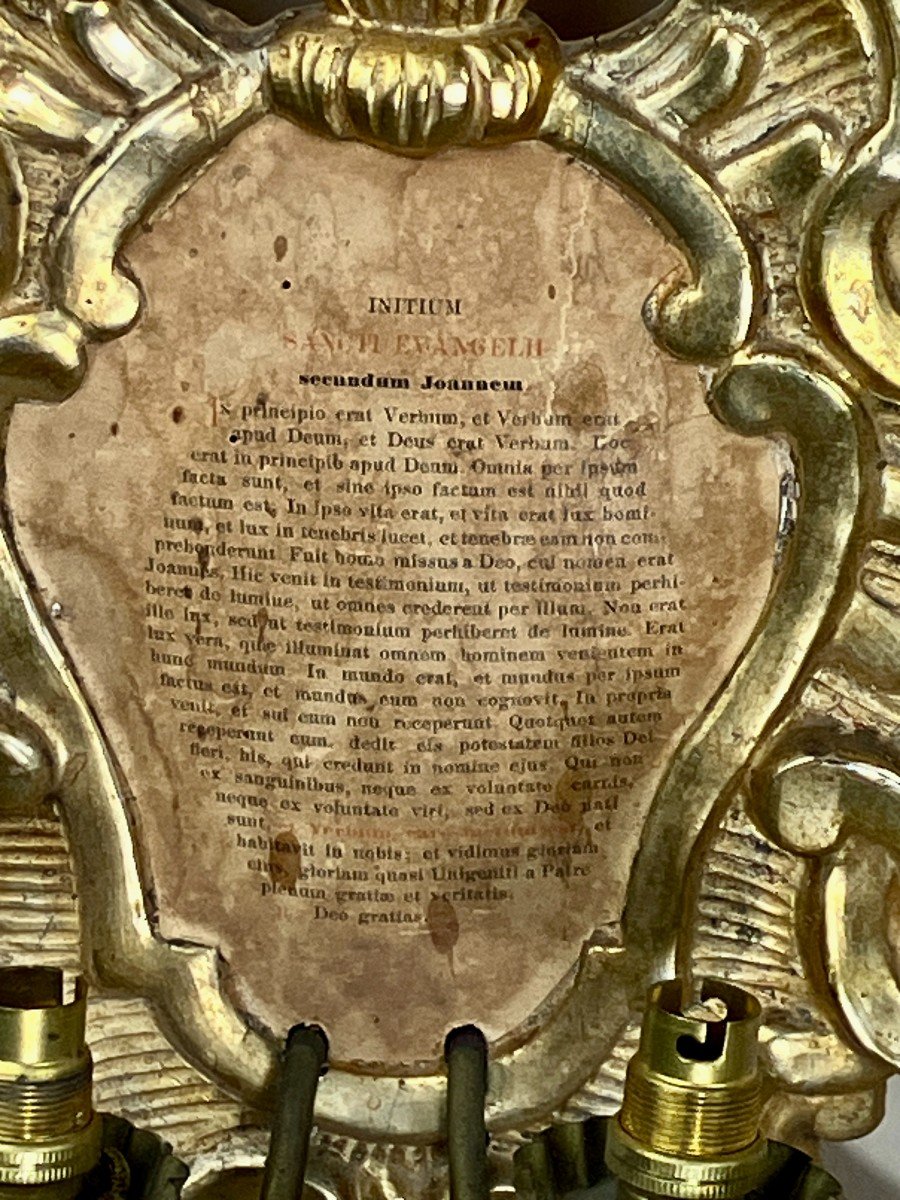 INITIUM
SANCTI EVANGELII
secundum Joannem
IN principio erat Verbum, et Verbum erat
apud Deum, et Deus erat Verbum. Hoc
erat in principio apud Deum. Omnia per ipsum
facta sunt, et sine ipso factum est nihil quod
factum est, In ipso vita erat, et vita erat lux homi-
num, et lux in tenebris lucet, et tenebræ eam non com-
prehenderunt Fuit homo missus a Deo, cui nomen erat
Joannes, Hic venit in testimonium, ut testimonium perhi-
beret de lumine, ut omnes crederent per illum. Non erat
ille lux, sed ut testimonium perhiberet de lumine. Erat
lux vera, quæ illuminat omnem hominem venientem in
hunc mundum. In mundo erat, et mundus per ipsum
factus est, et mundus eum non cognovit. In propria
venit, et sui eum non receperunt. Quotquot autem
receperunt eum, dedit eis potestatem filios Dei
fieri, his, qui credunt in nomine ejus. Qui non
ex sanguinibus, neque ex voluntate carnis,
neque ex voluntate viri, sed ex Deo nati
sunt. Et Verbum caro factum est, et
habitavit in nobis; et vidimus gloriam
ejus, gloriam quasi Unigeniti a Patre
plenum gratiæ et veritatis.
Deo gratias.